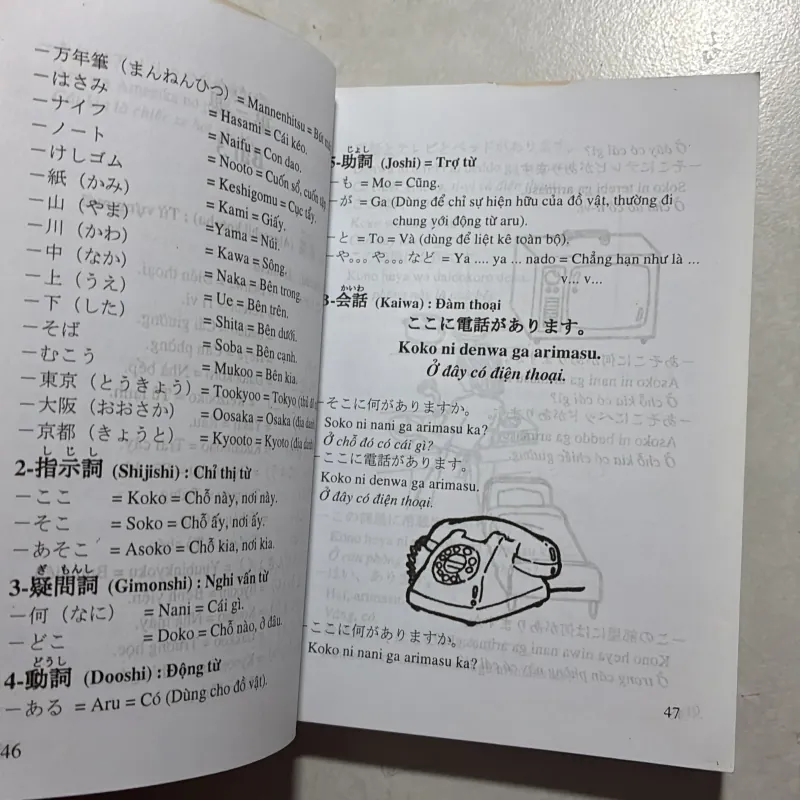 －万年筆（まんねんひつ）= Mannenhitsu = Bút
－はさみ = Hasami = Cái kéo.
－ナイフ = Naifu = Con dao.
－ノート = Nooto = Cuốn sổ, cuốn tập
－けしゴム = Keshigomu = Cục tẩy.
－紙（かみ） = Kami = Giấy.
－山（やま） =Yama = Núi.
－川（かわ） = Kawa = Sông.
－中（なか） = Naka = Bên trong.
－上（うえ） = Ue = Bên trên.
－下（した） = Shita = Bên dưới.
－そば = Soba = Bên cạnh.
－むこう = Mukoo = Bên kia.
－東京（とうきょう）= Tookyoo = Tokyo (thủ đô
－大阪（おおさか） = Oosaka = Osaka (địa danh
－京都（きょうと） = Kyooto = Kyoto (địa danh
しじし
2-指示詞 (Shijishi) : Chỉ thị từ
－ここ = Koko = Chỗ này, nơi này.
－そこ = Soko = Chỗ ấy, nơi ấy.
－あそこ = Asoko = Chỗ kia, nơi kia.
ぎもんし
3-疑問詞 (Gimonshi) : Nghi vấn từ
－何（なに） = Nani = Cái gì.
－どこ = Doko = Chỗ nào, ở đâu.
どうし
4-動詞 (Dooshi) : Động từ
－ある = Aru = Có (Dùng cho đồ vật).
46
じょし
5-助詞 (Joshi) = Trợ từ
－も = Mo = Cũng.
－が = Ga (Dùng để chỉ sự hiện hữu của đồ vật, thường đi
chung với động từ aru).
－と = To = Và (dùng để liệt kê toàn bộ).
－や。。。や。。。など = Ya .... ya ... nado = Chẳng hạn như là ...
v... v...
かいわ
B-会話 (Kaiwa) : Đàm thoại
ここに電話があります。
Koko ni denwa ga arimasu.
Ở đây có điện thoại.
－そこに何がありますか。
Soko ni nani ga arimasu ka?
Ở chỗ đó có cái gì?
－ここに電話があります。
Koko ni denwa ga arimasu.
Ở đây có điện thoại.
－ここに何がありますか。
Koko ni nani ga arimasu ka?
47